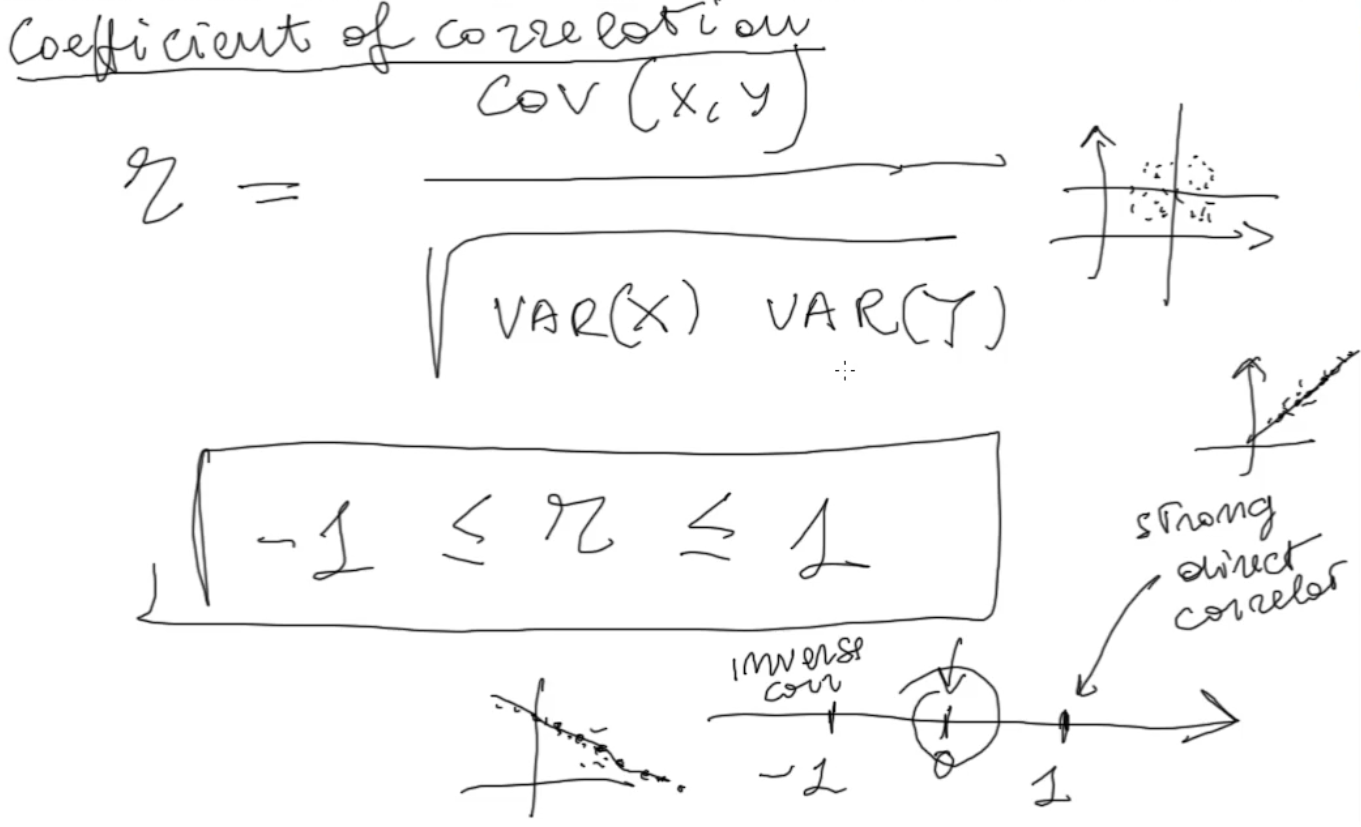 Coefficient of correlation
r = COV (X, Y)
√ VAR(X) VAR(Y)
-1 ≤ r ≤ 1
strong
direct
correlat
inverse
corr
-1 0 1